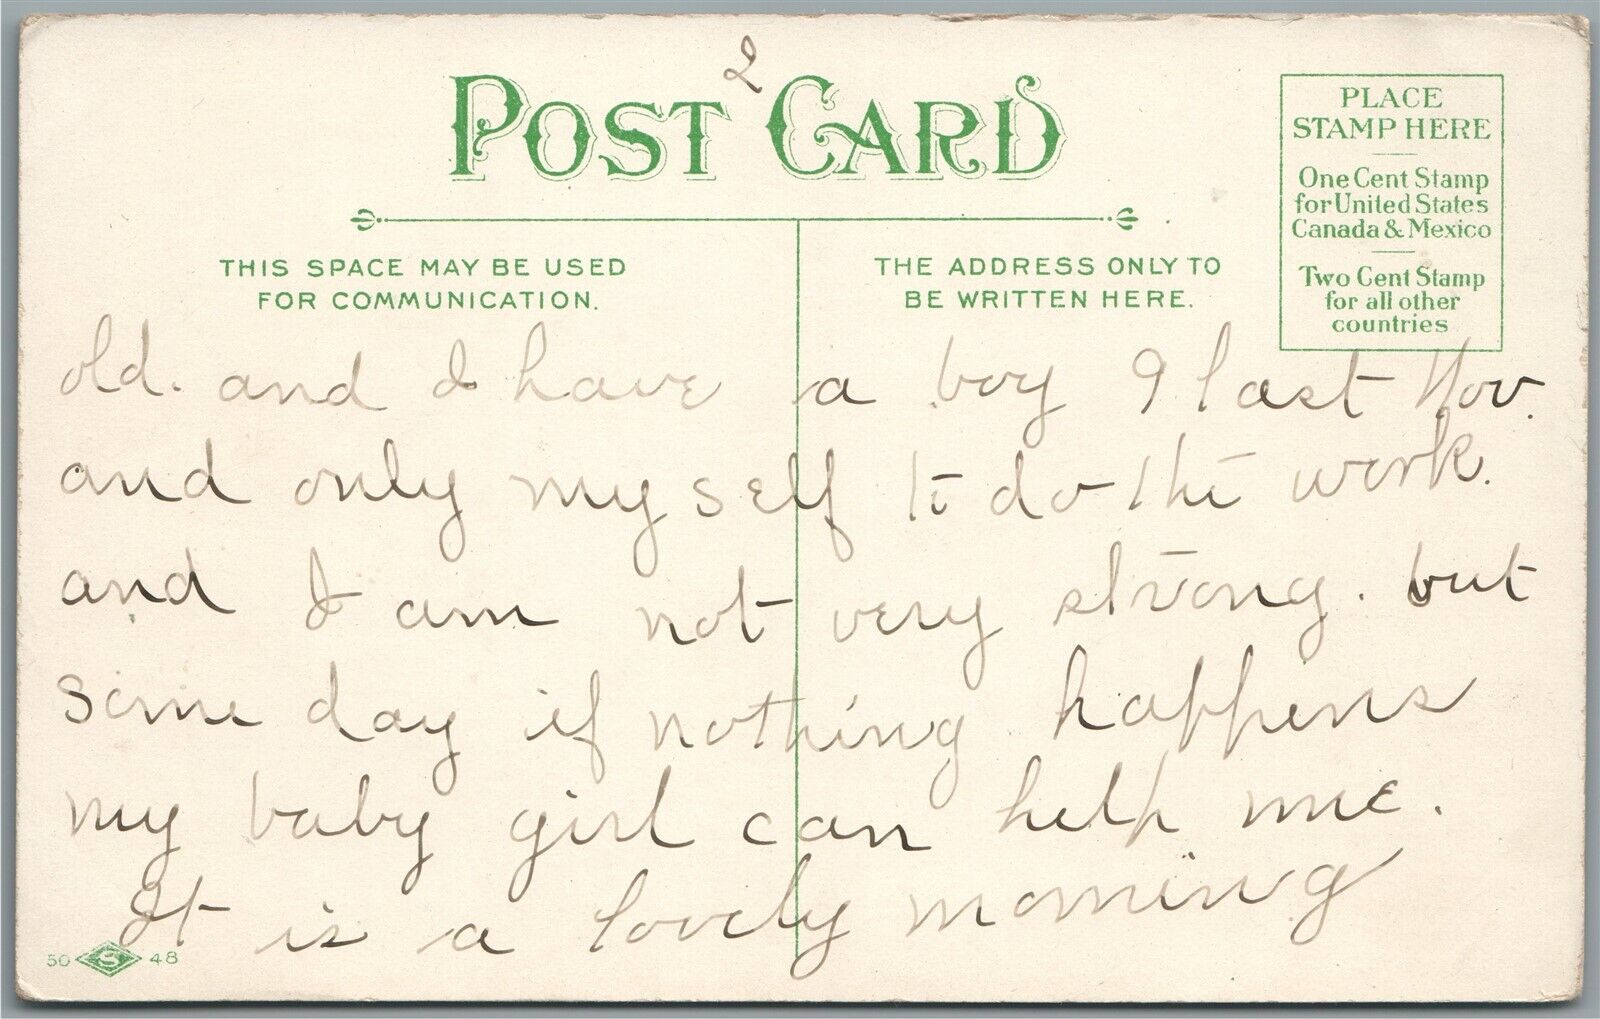 2
POST CARD
PLACE
STAMP HERE
One Cent Stamp
for United States
Canada & Mexico
Two Cent Stamp
for all other
countries
THIS SPACE MAY BE USED
FOR COMMUNICATION.
THE ADDRESS ONLY TO
BE WRITTEN HERE.
old. and I have a boy 9 last Nov.
and only my self to do the work.
and I am not very strong. but
some day if nothing happens
my baby girl can help me.
It is a lovely morning
50 S 48